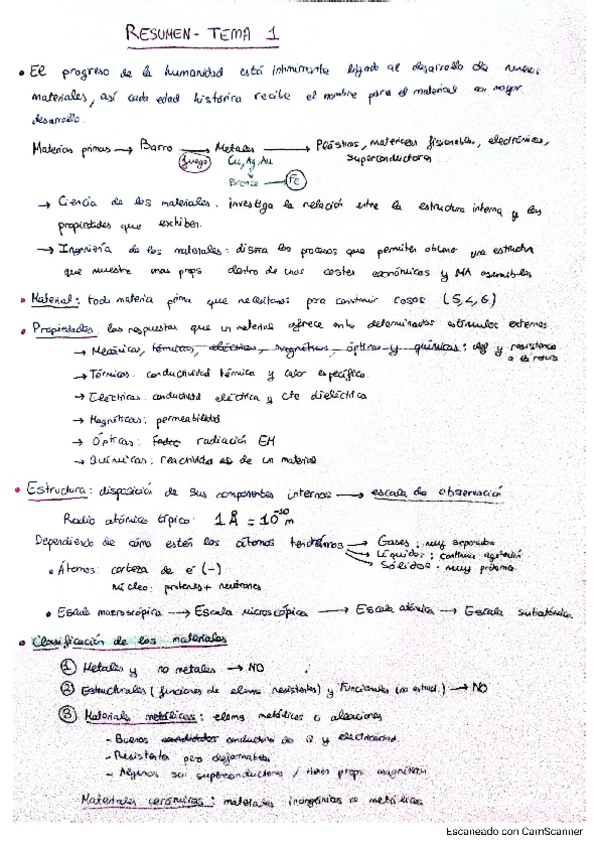 RESUMEN - TEMA 1
• El progreso de la humanidad está íntimamente ligado al desarrollo de nuevos
materiales, así cada edad histórica recibe el nombre para el material con mayor
desarrollo.
Materias primas → Barro → Metales → Plásticos, materiales fisionables, electrónicos,
superconductores
fuego Cu, Ag, Au
Bronce → Fe
→ Ciencia de los materiales: investiga la relación entre la estructura interna y las
propiedades que exhiben.
→ Ingeniería de los materiales: diseña los procesos que permiten obtener una estructura
que muestre unas props dentro de unos costes económicos y MA asumibles
• Material: toda materia prima que necesitamos para construir cosas (S, L, G)
• Propiedades: las respuestas que un material ofrece ante determinados estímulos externos
→ Mecánicas, térmicas, eléctricas, magnéticas, ópticas y químicas: def y resistencia
a
→ Térmicas: conductividad térmica y calor específico.
→ Eléctricas: conductividad eléctrica y cte dieléctrica
→ Magnéticas: permeabilidad
→ Ópticas: radiación EM
→ Químicas: reactividad de un material
• Estructura: disposición de sus componentes internos → escala de observación
Radio atómico típico: 1 Å = 10⁻¹⁰ m
Dependiendo de cómo estén los átomos tendremos → Gases: muy separados
→ Líquidos:
→ Sólidos: muy próximos
• Átomos: corteza de e⁻ (-)
núcleo: protones + neutrones
• Escala macroscópica → Escala microscópica → Escala atómica → Escala subatómica
• Clasificación de los materiales
① Metales y no metales → NO
② Estructurales (funciones de elems resistentes) y Funcionales (no estruct.) → NO
③ Materiales metálicos: elems metálicos o aleaciones
- Buenos conductores de Q y electricidad.
- Resistentes pero deformables
- Algunos son superconductores / tienen props magnéticas
Materiales cerámicos: materiales inorgánicos no metálicos
Escaneado con CamScanner